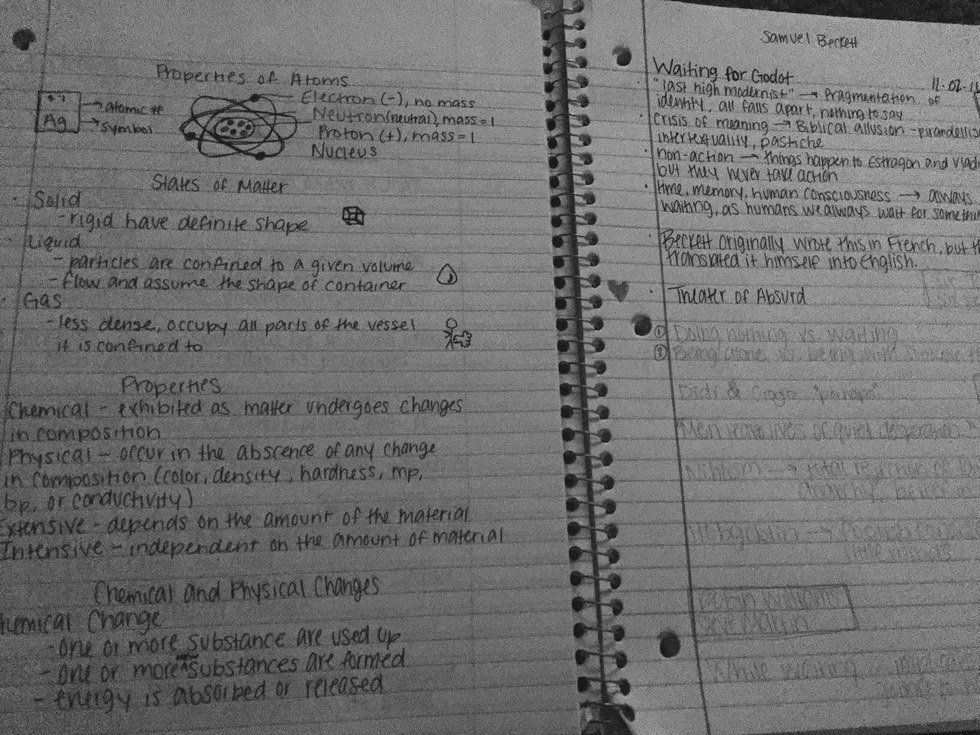 Properties of Atoms
Electron (-), no mass
Neutron (neutral), mass = 1
Proton (+), mass = 1
Nucleus
47
Ag
Atomic #
Symbol
States of Matter
Solid
- rigid have definite shape
Liquid
- particles are confined to a given volume
- flow and assume the shape of container
Gas
- less dense, occupy all parts of the vessel
it is confined to
Properties
Chemical - exhibited as matter undergoes changes
in composition
Physical - occur in the abscence of any change
in composition (color, density, hardness, mp,
bp, or conductivity)
Extensive - depends on the amount of the material
Intensive - independent on the amount of material
Chemical and Physical Changes
hemical Change
- one or more substance are used up
- one or more substances are formed
- energy is absorbed or released
Samuel Beckett
Waiting for Godot
"last high modernist" → Fragmentation of
identity, all falls apart, nothing to say
crisis of meaning → Biblical allusion - pirandello
intertextuality, pastiche
non-action → things happen to Estragon and Vlad
but they never take action
time, memory, human consciousness → always
waiting, as humans we always wait for someth
Beckett originally wrote this in French, but th
translated it himself into English.
Theater of Absurd
① Doing nothing vs waiting
② Being alone vs. being
Didi & Gogo "perhaps"
Men lead lives of quiet desperation
Nihilism → total
Robin Williams
Steve Martin
While waiting